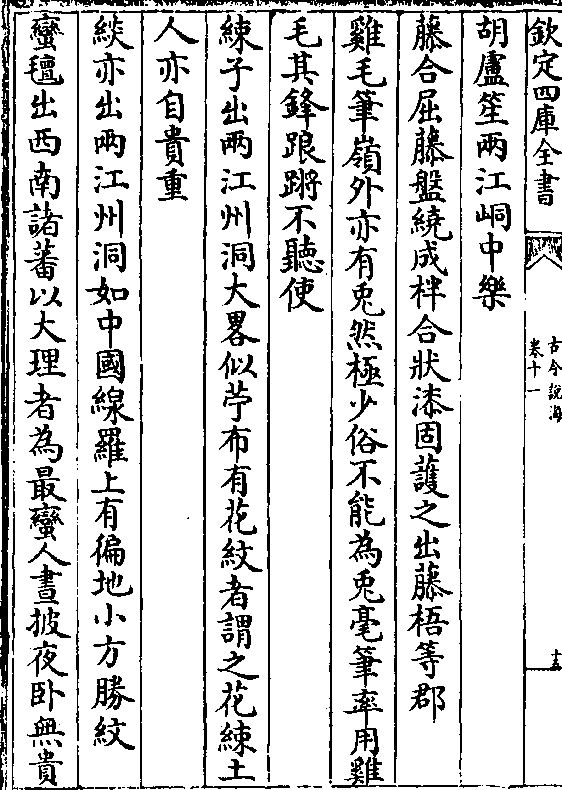 欽定四庫全書
古今說海
卷十一
十五
胡盧笙兩江峒中樂
藤合屈藤盤繞成柈合狀漆固䕶之出藤梧等郡
雞毛筆嶺外亦有兎然極少俗不能為兎毫筆率用雞
毛其鋒踉蹡不聽使
綀子出兩江州洞大畧似苧布有花紋者謂之花綀土
人亦自貴重
緂亦出兩江州洞如中國線羅上有徧地小方勝紋
蠻氊出西南諸蕃以大理者為最蠻人晝披夜卧無貴